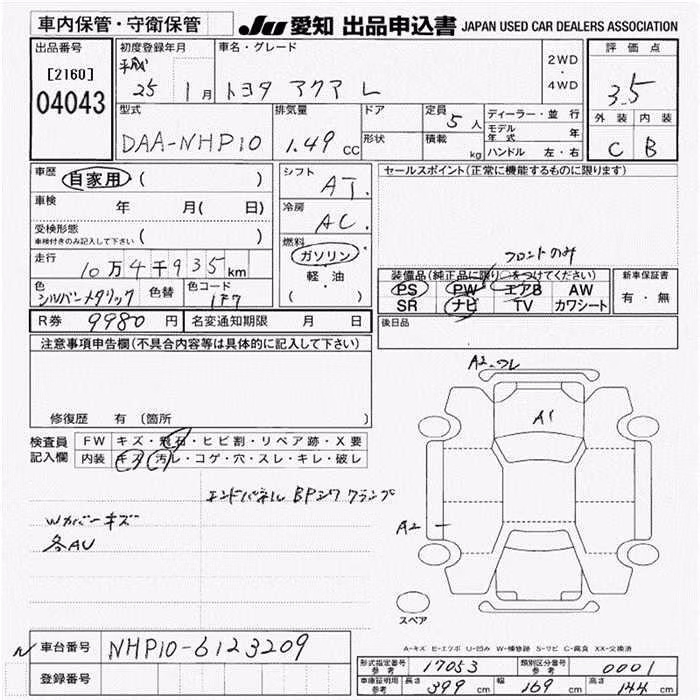 車内保管・守衛保管
JU 愛知 出品申込書 JAPAN USED CAR DEALERS ASSOCIATION
出品番号
[2160]
04043
初度登録年月
平成
25 1月
車名・グレード
トヨタ アクア L
2WD
・
4WD
評価点
3.5
外装 内装
C B
型式
DAA-NHP10
排気量
1.49 CC
ドア
形状
定員
5人
積載
kg
ディーラー・並行
モデル年式 年
ハンドル 左・右
車歴
自家用 ( )
車検 年 月( 日)
受検形態
車検付きのみ記入して下さい ( )
走行
10万4千935km
色
シルバーメタリック
色替
色コード
1F7
シフト
AT.
冷房
AC.
燃料
ガソリン
軽・油
( )
セールスポイント(正常に機能するものに限ります)
フロントのみ
装備品(純正品に限り○をつけてください)
PS PW エアB AW
SR ナビ TV カワシート
新車保証書
有・無
R券 9980円 名変通知期限 月 日
後日品
注意事項申告欄(不具合内容等は具体的に記入して下さい)
修復歴 有(箇所 )
検査員記入欄
FW キズ・飛石・ヒビ割・リペア跡・X要
内装 キズ・汚レ・コゲ・穴・スレ・キレ・破レ
エンドパネル BPシワ クランプ
Wカバーキズ
各AU
A2
A1
A2
スペア
A-キズ E-エクボ U-凹み W-補修跡 S-サビ C-腐食 XX-交換済
N
車台番号 NHP10-6123209
登録番号
形式指定番号 参考 17053 類別区分番号 参考 0001
車庫証明用 参考 長さ 399 cm 幅 169 cm 高さ 144 cm